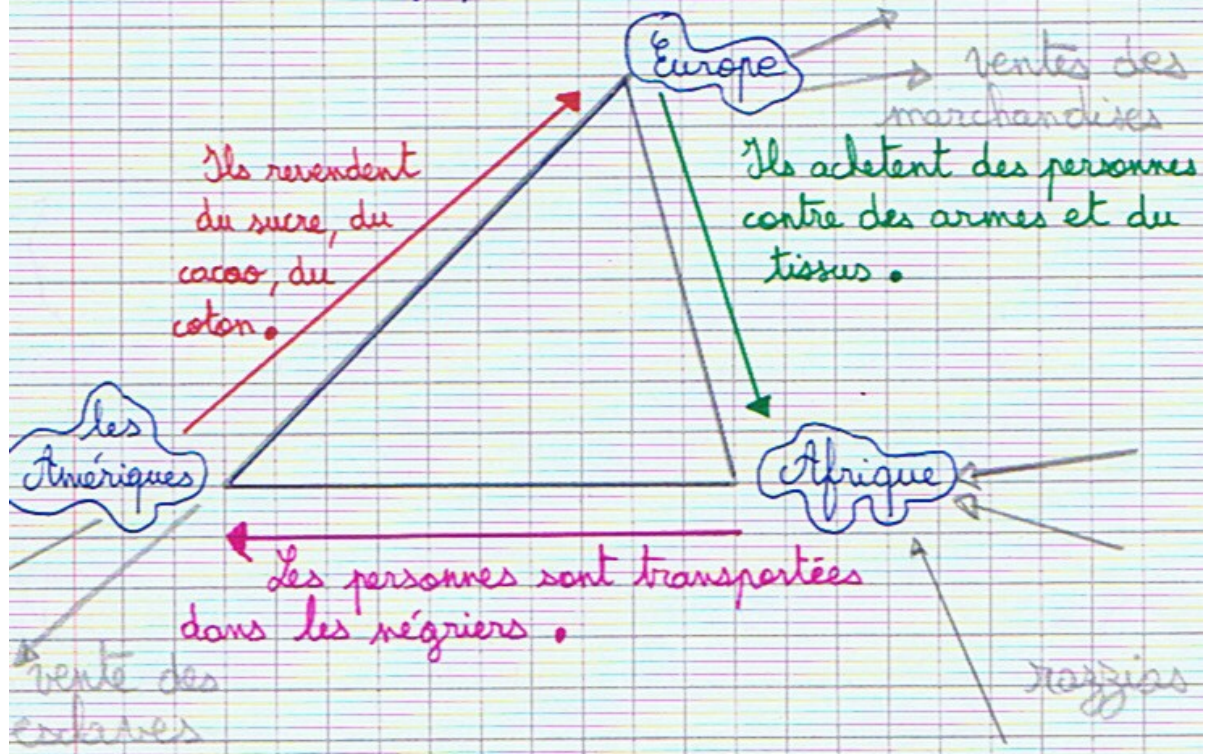 Europe
ventes des
marchandises
Ils revendent
du sucre, du
cacao, du
coton.
Ils achetent des personnes
contre des armes et du
tissus.
les
Amériques
Afrique
Les personnes sont transportées
dans les négriers.
vente des
esclaves
razzias